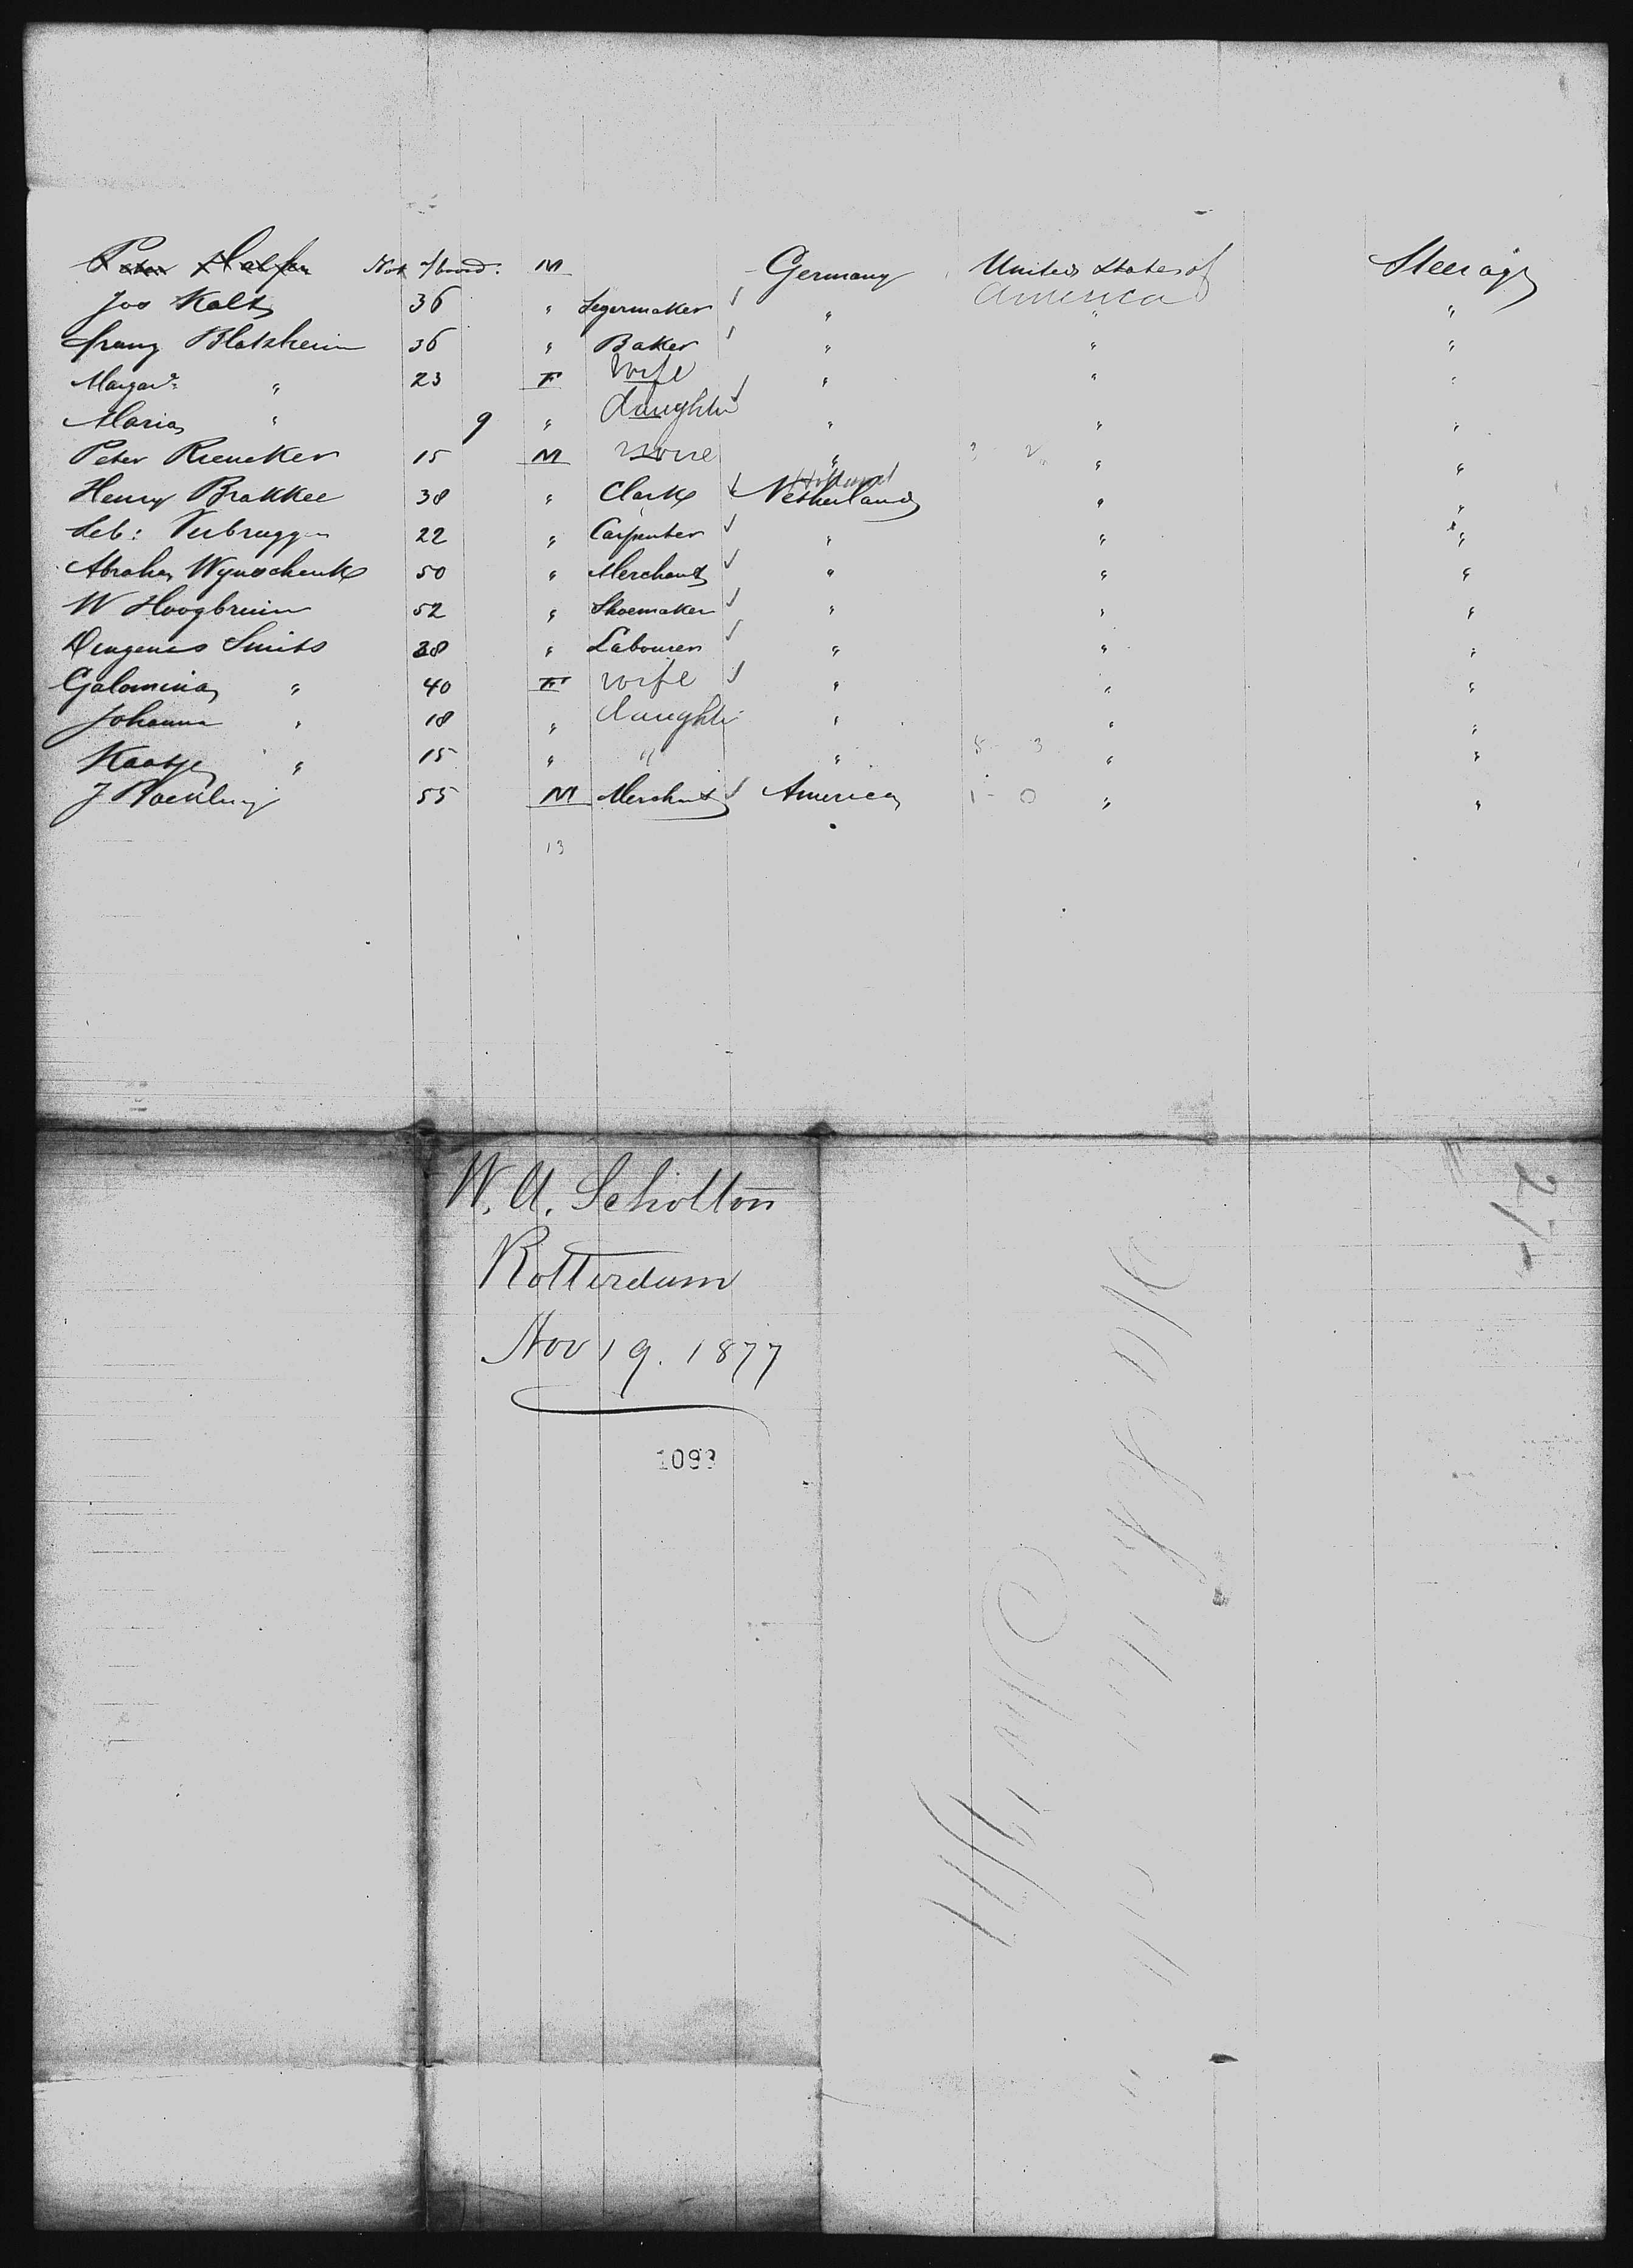 Peter Halfen Not o/board. M Germany United States of Steerage
America
Jos Kalt 36 " Segermaker " " "
Franz Blatzheim 36 " Baker " " "
Margar. " 23 F wife " " "
Maria " 9 " daughter " " "
Peter Rieneker 15 M none " " "
Holland
Henry Brakkee 38 " Clark Netherland " "
Seb: Verbruggen 22 " Carpenter " " "
Abraham Wynschenk 50 " Merchant " " "
W Hoogbruin 52 " Shoemaker " " "
Smits 38 " Labourer " " "
Galomina " 40 F wife " " "
Johanna " 18 " daughter " " "
Kaatje " 15 " " " " "
J 55 M Merchant America 1 - 0 " "
13
W. A. Scholton
Rotterdam
Nov 19. 1877
1093
27